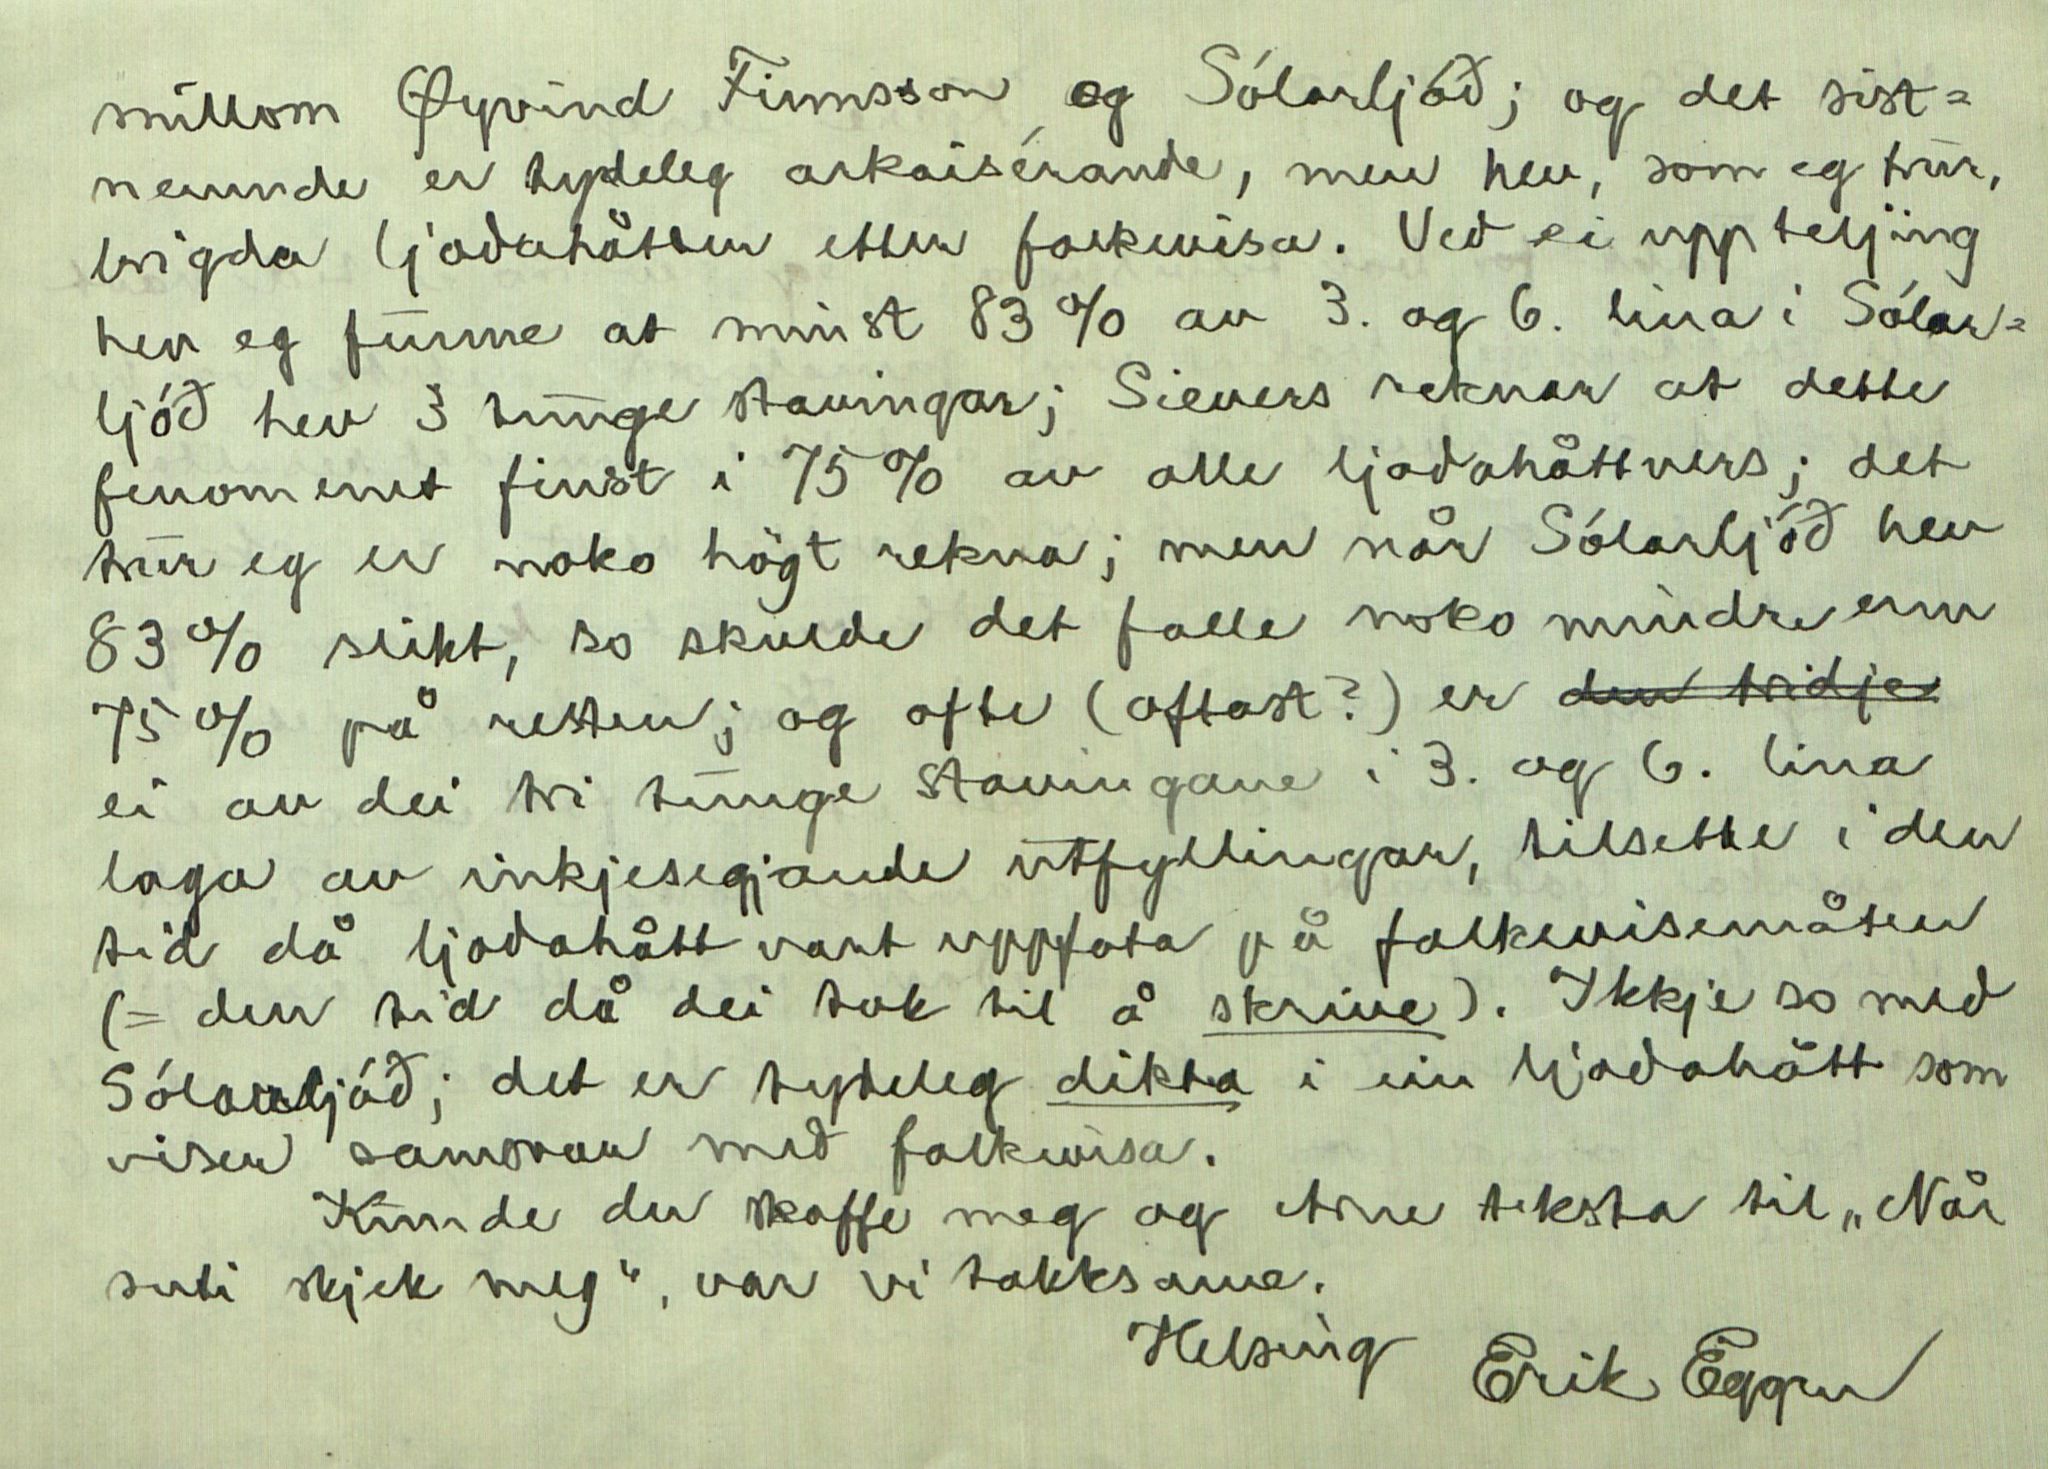 millom Øyvind Finnsson og Sólarljóð; og det sist=
nemnde er tydeleg arkaiserande, men hev, som eg trur,
brigda ljoðahåtten etter folkevisa. Ved ei uppteljing
hev eg funne at minst 83% av 3. og 6. lina i Sólar=
ljóð hev 3 tunge stavingar; Sievers reknar at dette
fenomenet finst i 75% av alle ljoðahåttvers; det
trur eg er noko högt rekna; men når Sólarljóð hev
83% slikt, so skulde det falle noko mindre enn
75% på resten; og ofte (oftast?) er den tridje
ei av dei tri tunge stavingane i 3. og 6. lina
laga av inkjesegjande utfyllingar, tilsette i den
tid då ljoðahått vart uppfata på folkevisemåten
(= den tid då dei tok til å skrive). Ikkje so með
Sólarljóð; det er tydeleg dikta i ein ljoðahått som
viser samsvar með folkevisa.
Kunde du skaffe meg og tone teksta til „Når
suti skjek meg“, var vi takksame.
Helsing Erik Eggen